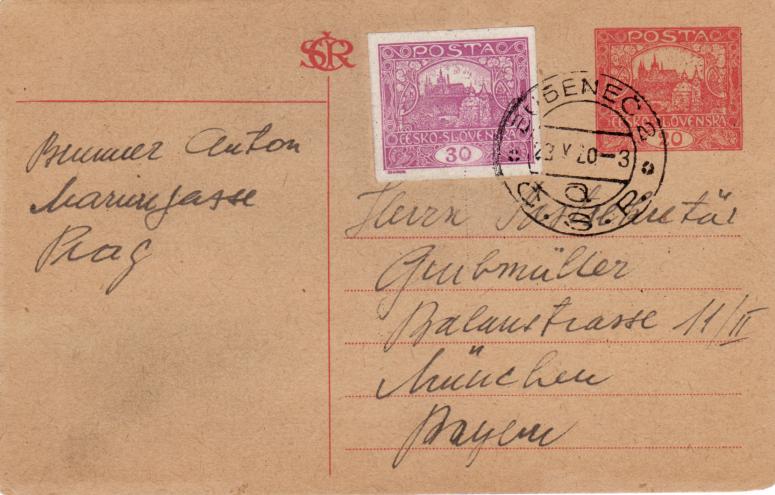 ČSR
POSTA
ČESKO-SLOVENSKÁ
30
POSTA
ČESKO-SLOVENSKÁ
20
BUBENEČ 2
23 V 20-3
Č. S. R.
Brunner Anton
Mariengasse
Prag
Herrn
Grubmüller
Balanstrasse 11/II
München
Bayern